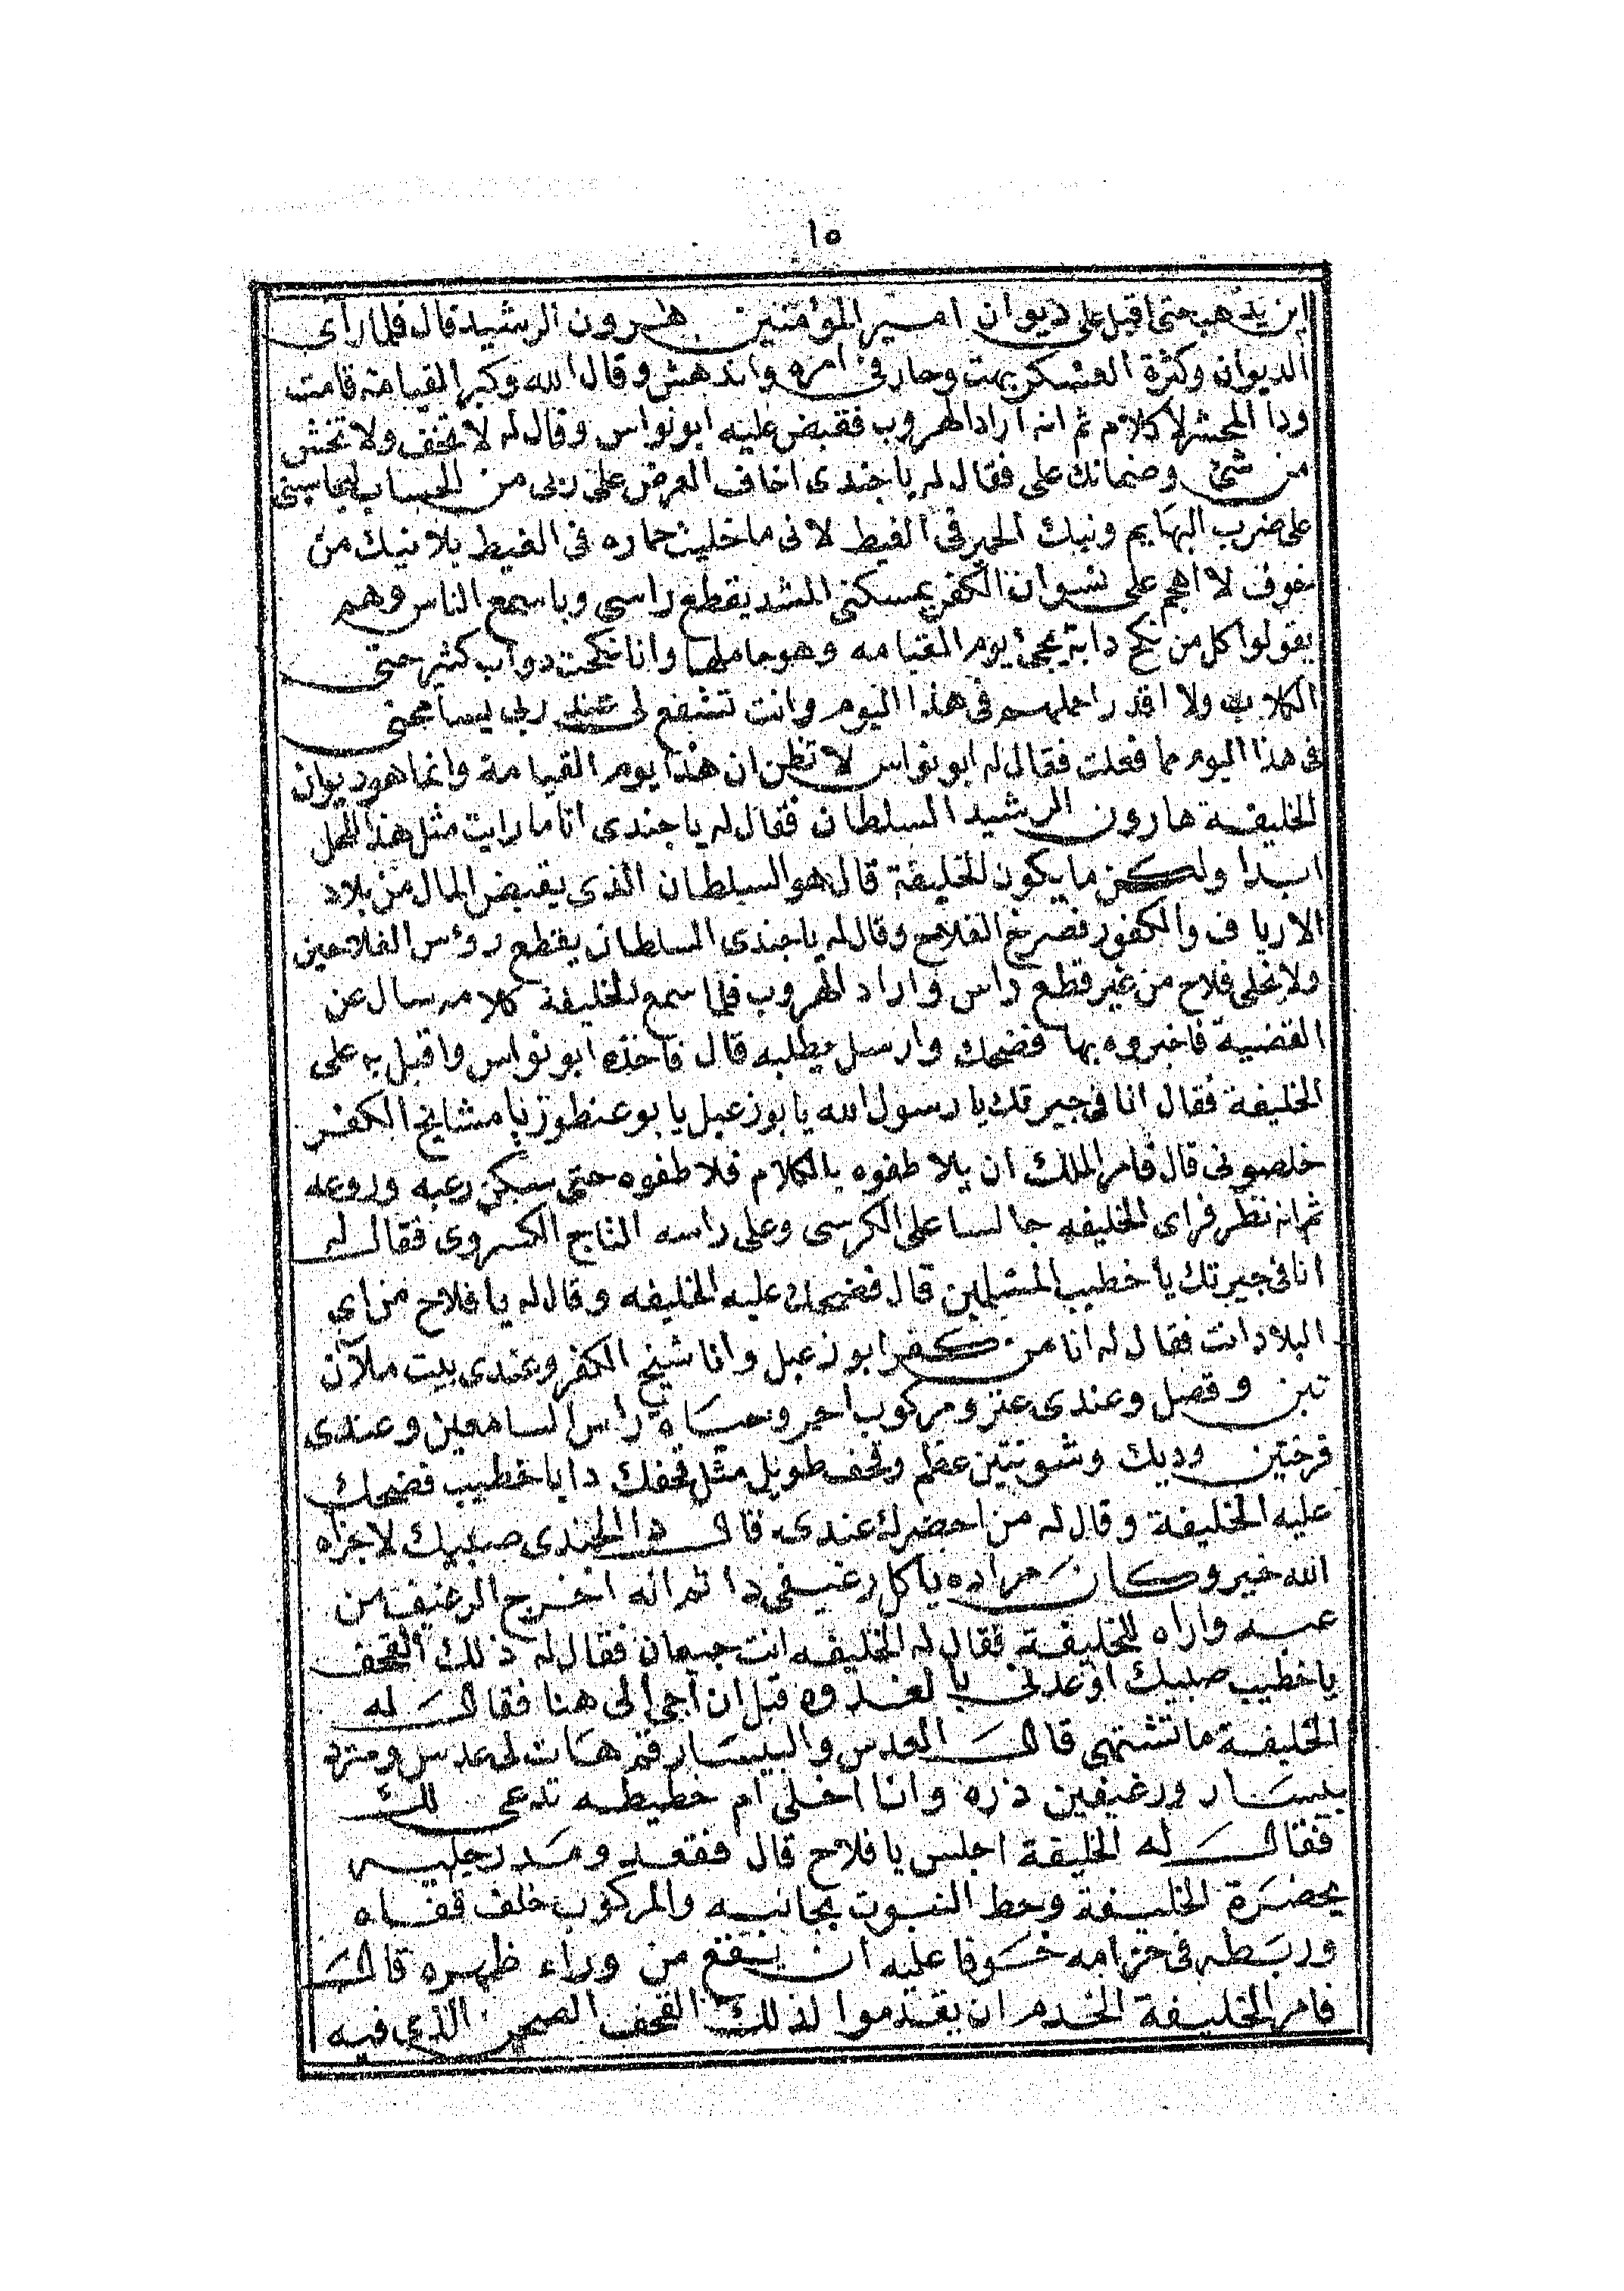 ١٥
اين يذهب حتى اقبل على ديوان امير المؤمنين هرون الرشيد قال فلما رأى
الديوان وكثرة العسكر بهت وحار فى امره واندهش وقال الله وكبر القيامة قامت
ودا المحشر لا كلام ثم انه اراد الهروب فقبض عليه ابو نواس وقال له لا تخف ولا تخش
من شئ وضمانك على فقال له يا جندى اخاف العرض على ربى من الحساب ليحاسبنى
على ضرب البهايم ونيك الحمير فى الغيط لانى ما خليت حماره فى الغيط بلا نيك من
خوف لا اهجم على نسوان الكفر يمسكنى المشد يقطع راسى وباسمع الناس وهم
يقولوا كل من نكح دابة يجئ يوم القيامه وهو حاملها وانا نكحت دواب كثير حتى
الكلاب ولا اقدر احملهم فى هذا اليوم وانت تشفع لى عند ربى يسامحنى
فى هذا اليوم مما فعلت فقال له ابو نواس لا تظن ان هذا يوم القيامة وانما هو ديوان
الخليفة هارون الرشيد السلطان فقال له يا جندى انا ما رايت مثل هذا المحل
ابدا ولكن ما يكون الخليفة قال هو السلطان الذى يقبض المال من بلاد
الارياف والكفور فصرخ الفلاح وقال له يا جندى السلطان يقطع رؤس الفلاحين
ولا يخلى فلاح من غير قطع راس واراد الهروب فلما سمع الخليفة كلامه سال عن
القضية فاخبروه بها فضحك وارسل يطلبه قال فاخذه ابو نواس واقبل به على
الخليفة فقال انا فى جيرتك يا رسول الله يا بو زعبل يا بو عنطوز يا مشايخ الكفر
خلصونى قال فامر الملك ان يلاطفوه بالكلام فلاطفوه حتى سكن رعبه وروعه
ثم انه نظر فراى الخليفه جالسا على الكرسى وعلى راسه التاج الكسروى فقال له
انا فى جيرتك يا خطيب المسلمين قال فضحك عليه الخليفه وقال له يا فلاح من اى
البلاد انت فقال له انا من كفر ابو زعبل وانا شيخ الكفر وعندى بيت ملآن
تبن وقصل وعندى عنز ومركوب احمر وحساة راس السامعين وعندى
فرختين وديك وشونتين عظم وقحف طويل مثل قحفك دا يا خطيب فضحك
عليه الخليفة وقال له من احضرك عندى قال دا الجندى صبيك لا جزاه
الله خير وكان مراده ياكل رغيفى دا ثم انه اخرج الرغيف من
عبه واراه للخليفة فقال له الخليفه انت جيعان فقال له ذلك القحف
يا خطيب صبيك اوعدنى بالغدوه قبل ان اجى الى هنا فقال له
الخليفة ما تشتهى قال العدس والبيسار قم هات لى عدس ومترد
بيسار ورغيفين ذره وانا اخلى ام خطيطه تدعى لك
فقال له الخليفة اجلس يا فلاح قال فقعد ومد رجليه
بحضرة الخليفة وحط النبوت بجانبه والمركوب خلف قفاه
وربطه فى حزامه خوفا عليه ان يقع من وراء ظهره قال
فامر الخليفة الخدم ان يقدموا لذلك القحف الصحن الذى فيه